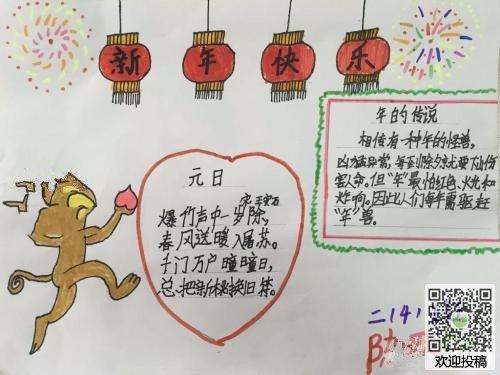 新年快乐
年的传说
相传有一种年的怪兽，
凶猛异常，每到除夕
害人命。但"年"最怕红色、火光和
炸响。因此人们每年需驱赶
"年"兽。
元日
宋·王安石
爆竹声中一岁除，
春风送暖入屠苏。
千门万户曈曈日，
总把新桃换旧符。
二（4）
欢迎投稿